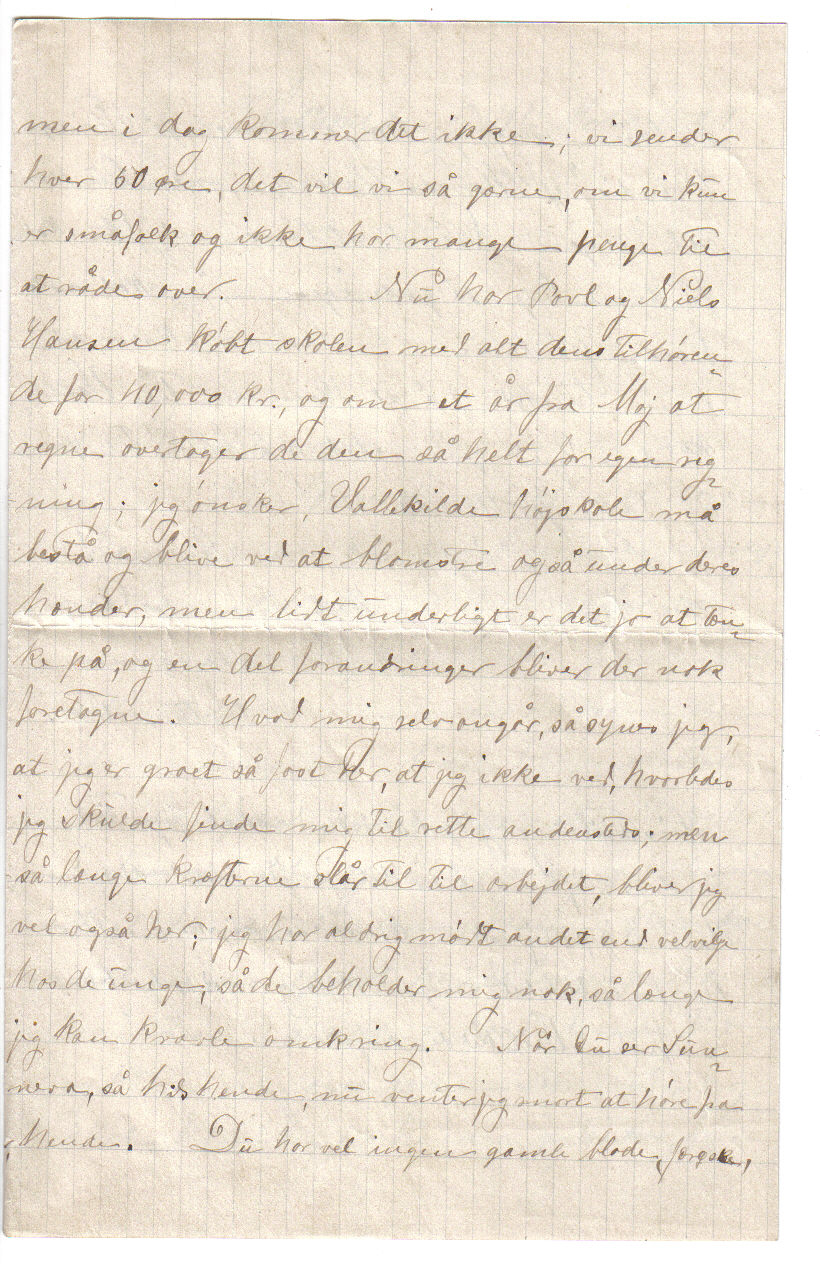 men i dag kommer det ikke; vi sender
hver 50 øre, det vil vi så gærne, om vi kun
er småfolk og ikke har mange penge til
at råde over. Nu har Povl og Niels
Hansen købt skolen med alt dens tilhøren-
de for 40,000 kr., og om et år fra Maj at
regne overtager de den så helt for egen reg-
ning; jeg ønsker, Vallekilde højskole må
bestå og blive ved at blomstre også under deres
hænder, men lidt underligt er det jo at tæn-
ke på, og en del forandringer bliver der nok
foretagne. Hvad mig selv angår, så synes jeg,
at jeg er groet så fast her, at jeg ikke ved, hvorledes
jeg skulde finde mig til rette andensteds; men
så længe kræfterne slår til til arbejdet, bliver jeg
vel også her; jeg har aldrig mødt andet end velvilje
hos de unge, så de beholder mig nok, så længe
jeg kan kravle omkring. Når Du ser Sun-
neva, så hils hende, nu venter jeg snart at høre fra
hende. Du har vel ingen gamle blade, færøske,